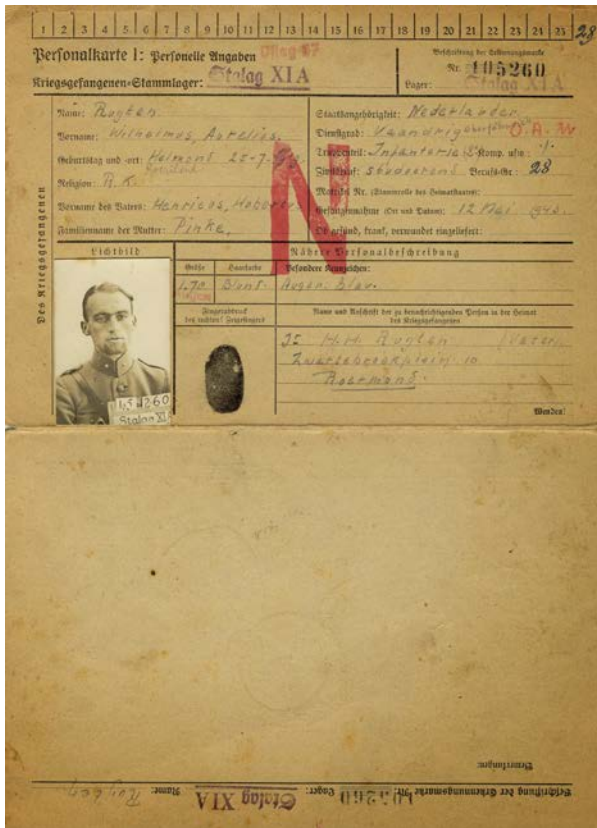 1 2 3 4 5 6 7 8 9 10 11 12 13 14 15 16 17 18 19 20 21 22 23 24 25 28
Personalkarte I: Personelle Angaben
Kriegsgefangenen-Stammlager: Stalag XI A
Beschriftung der Erkennungsmarke
Nr. 105260
Lager: Stalag XI A
Des Kriegsgefangenen
Name:
Vorname: Wilhelmus, Aurelius.
Geburtstag und -ort: Helmond 25-7-
Religion: R.K.
Vorname des Vaters: Henricus,
Familienname der Mutter:
Staatsangehörigkeit: Nederlander.
Dienstgrad: Vaandrig O.A.
Truppenteil: Infanterie Komp. usw.:
Zivilberuf: Studeerend Berufs-Gr.: 28
Matrikel Nr. (Stammrolle des Heimatstaates):
Gefangennahme (Ort und Datum): 12 Mei
Ob gesund, krank, verwundet eingeliefert:
N
Lichtbild
Nähere Personalbeschreibung
Größe Haarfarbe Besondere Kennzeichen:
1.70 Blond. Augen: blau.
Fingerabdruck
des rechten! Zeigefingers
Name und Anschrift der zu benachrichtigenden Person in der Heimat
des Kriegsgefangenen
H.H. Vater
10
Roermond.
Stalag XI
Wenden!
Bemerkungen:
Beschriftung der Erkennungsmarke Nr. 105260 Lager: Stalag XI A Name: